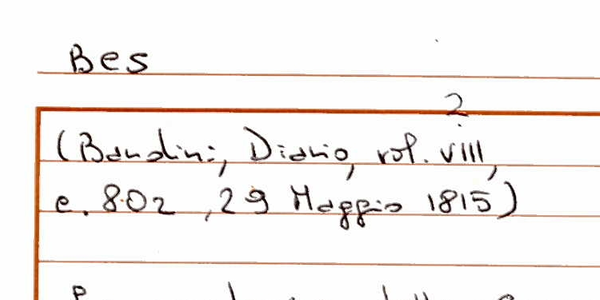 Bes
?
(Bandini, Diario, vol. VIII,
c. 802, 29 Maggio 1815)